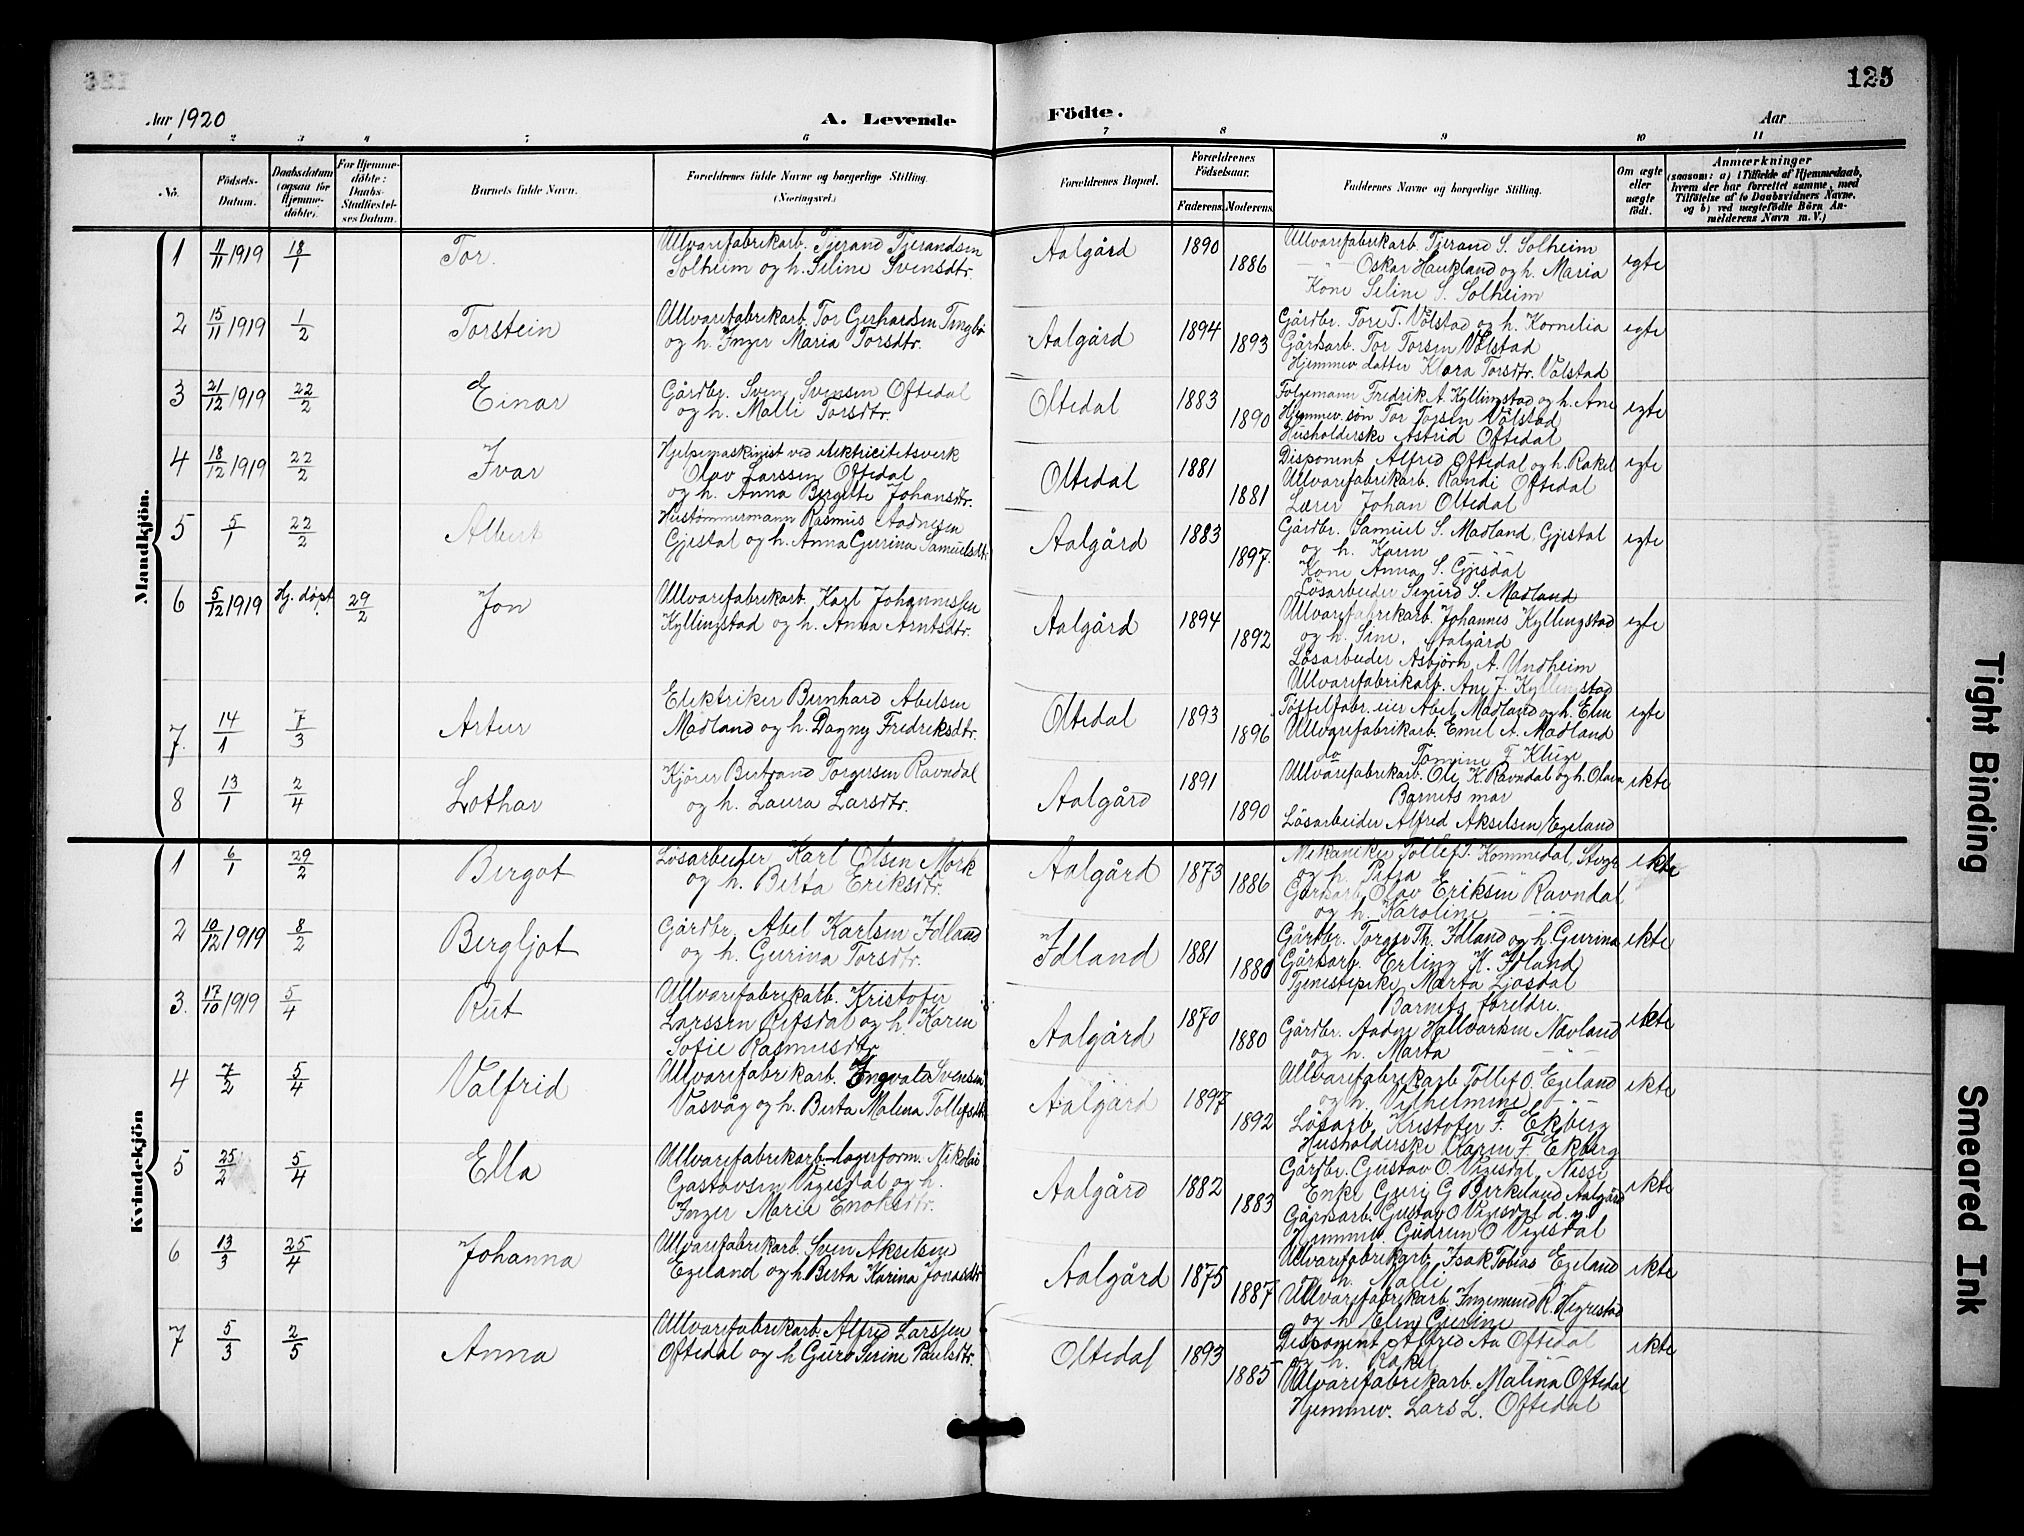 125
Aar 1920
A. Levende Födte.
Aar
1 2 3 4 5 6 7 8 9 10 11
No.
Födsels-Datum.
Daabsdatum (ogsaa for Hjemmedöbte).
For Hjemmedöbte: Daabs-Stadfæstelses Datum.
Barnets fulde Navn.
Forældrenes fulde Navne og borgerlige Stilling.
(Næringsvei.)
Forældrenes Bopæl.
Forældrenes Födselsaar.
Faderens. Moderens.
Faddernes Navne og borgerlige Stilling.
Om ægte eller uægte födt.
Anmærkninger
(saasom: a) i Tilfælde af Hjemmedaab, hvem der har forrettet samme, med Tilföielse af to Daabsvidners Navne, og b) ved uægtefödte Börn Anmelderens Navn m. V.)
Mandkjön.
1 4/11 1919 18/1 Tor.
Ullvarefabrikarb. Tjerand Tjerandsen
Solheim og h. Seline Svensdtr.
Aalgård 1890 1886
Ullvarefabrikarb. Tjerand S. Solheim
— " — Oskar Haukland og h. Maria
Kone Seline S. Solheim
egte
2 15/11 1919 1/2 Torstein
Ullvarefabrikarb. Tor Gerhardsen
og h. Inger Maria Torsdtr.
Aalgård 1894 1893
Gårdbr. Tore T. Vølstad og h. Kornelia
Gårdsarb. Tor Torsen Vølstad
Hjemmev. datter Klara Torsdtr. Vølstad
egte
3 21/12 1919 22/2 Einar
Gårdbr. Sven Svensen Oftedal
og h. Malli Torsdtr.
Oltedal 1883 1890
Følgemann Fredrik A. Kyllingstad og h. Ane
Hjemmev. søn Tor Torsen Vølstad
Husholderske Astrid Oftedal
egte
4 18/12 1919 22/2 Ivar
Hjelpemaskinist ved elektricitetsverk
Olav Larssen Oftedal
og h. Anna Bergitte Johansdtr.
Oltedal 1881 1881
Disponent Alfred Oftedal og h. Rakel
Ullvarefabrikarb. Randi Oftedal
Lærer Johan Oltedal
egte
5 5/1 22/2 Albert
Hustømmermann Rasmus Aadnesen
Gjestal og h. Anna Gurina Samuelsdtr.
Aalgård 1883 1897.
Gårdbr. Samuel S. Madland, Gjestal
og h. Karen
Kone Anna S. Gjesdal
Løsarbeider Sigurd S. Madland
egte
6 5/12 1919 Hj. døpt. 29/2 Jon
Ullvarefabrikarb. Karl Johannessen
Kyllingstad og h. Anna Arntsdtr.
Aalgård 1894 1892
Ullvarefabrikarb. Johannes Kyllingstad
og h. Sine, Aalgård
Løsarbeider Asbjørn A. Undheim
Ullvarefabrikarb. Ane J. Kyllingstad
egte
7. 14/1 7/3 Artur
Elektriker Bernhard Abelsen
Madland og h. Dagny Fredriksdtr.
Oltedal 1893 1896
Tøffelfabr. eier Abel Madland og h. Elen
Ullvarefabrikarb. Emel A. Madland
do Tomine T. Kluge
egte
8 13/1 2/4 Lothar
Kjører Bertrand Torgersen Ravndal
og h. Laura Larsdtr.
Aalgård 1891 1890
Ullvarefabrikarb. Ole K. Ravndal og h. Olava
Barnets mor
Løsarbeider Alfred Akselsen Egeland
ekte
Kvindekjön
1 6/1 29/2 Bergot
Løsarbeider Karl Olsen Mork
og h. Berta Eriksdtr.
Aalgård 1873 1886
Mekaniker Tollef T. Kommedal,
og h. Petra
Gårdsarb. Olav Eriksen Ravndal
og h. Karoline — " —
ekte
2 10/12 1919 8/2 Bergljot
Gårdbr. Abel Karlsen Idland
og h. Gurina Torsdtr.
Idland 1881 1880
Gårdbr. Torger Th. Idland og h. Gurina
Gårdsarb. Erling K. Idland
Tjenestepike Marta Ljosdal
ekte
3. 17/10 1919 5/4 Rut
Ullvarefabrikarb. Kristofer
Larssen Refsdal og h. Karen
Sofie Rasmusdtr.
Aalgård 1870 1880
Barnets foreldre.
Gårdbr. Aadne Hallvardsen Nævland
og h. Marta — " —
ekte
4 7/2 5/4 Valfrid
Ullvarefabrikarb. Ingvald Svensen
Vasvåg og h. Berta Malena Tollefsdtr.
Aalgård 1897 1892
Ullvarefabrikarb. Tollef O. Egeland
og h. Vilhelmine — " —
Løsarb. Kristofer F. Ekberg
Husholderske Karen F. Ekberg
ekte
5 25/2 5/4 Ella
Ullvarefabrikarb. lagerform. Nikolai
Gustavsen Vigesdal og h.
Inger Marie Enoksdtr.
Aalgård 1882 1883
Gårdbr. Gustav O. Vigesdal,
Enke Guri G. Birkeland Aalgård
Gårdsarb. Gustav O Vigesdal d. y.
Hjemmev. Gudrun O Vigesdal
ekte
6 13/3 25/4 Johanna
Ullvarefabrikarb. Sven Akselsen
Egeland og h. Berta Karina Jonasdtr.
Aalgård 1875 1887
Ullvarefabrikarb. Isak Tobias Egeland
og h. Malli — " —
Ullvarefabrikarb. Ingemund R. Hegrestad
og h. Elen Gurine
ekte
7 5/3 2/5 Anna
Ullvarefabrikarb. Alfred Larssen
Oftedal og h Guro Serine Paulsdtr.
Oltedal 1893 1885
Disponent Alfred Aa Oftedal
og h. Rakel — " —
Ullvarefabrikarb. Malina Oftedal
Hjemmev. Lars L. Oftedal
ekte
Tight Binding
Smeared Ink